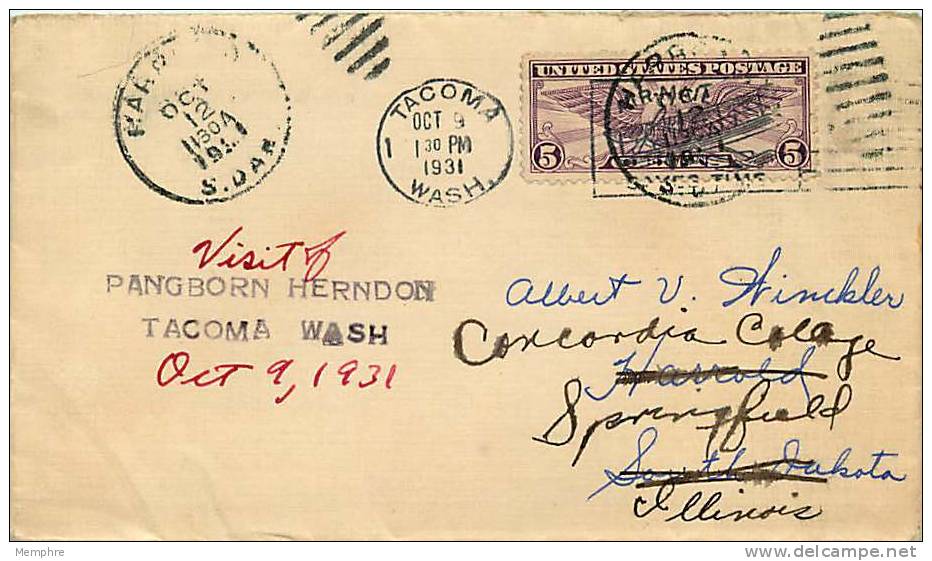 HARROLD
OCT
12
1930
S.DAK.
TACOMA
OCT 9
1 30 PM
1931
WASH.
UNITED STATES POSTAGE
5 5
Visit of
PANGBORN HERNDON
TACOMA WASH
Oct 9, 1931
Albert V. Winckler
Concordia Colage
Harrold
Springfield
South Dakota
Illinois
Memphre
www.delcampe.net